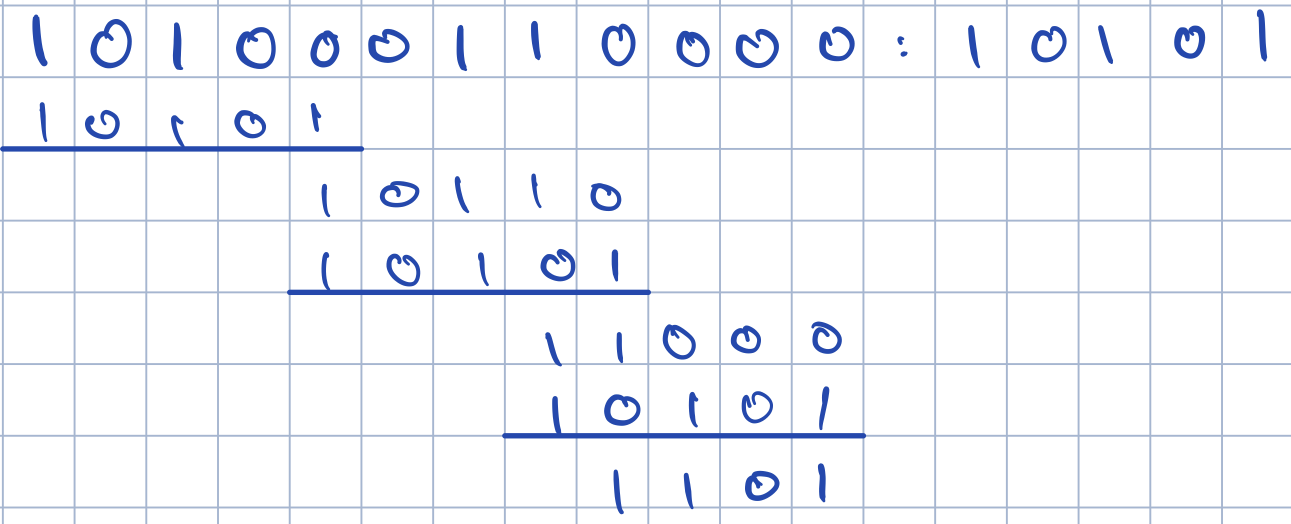 101000110000:10101
10101
10110
10101
11000
10101
1101